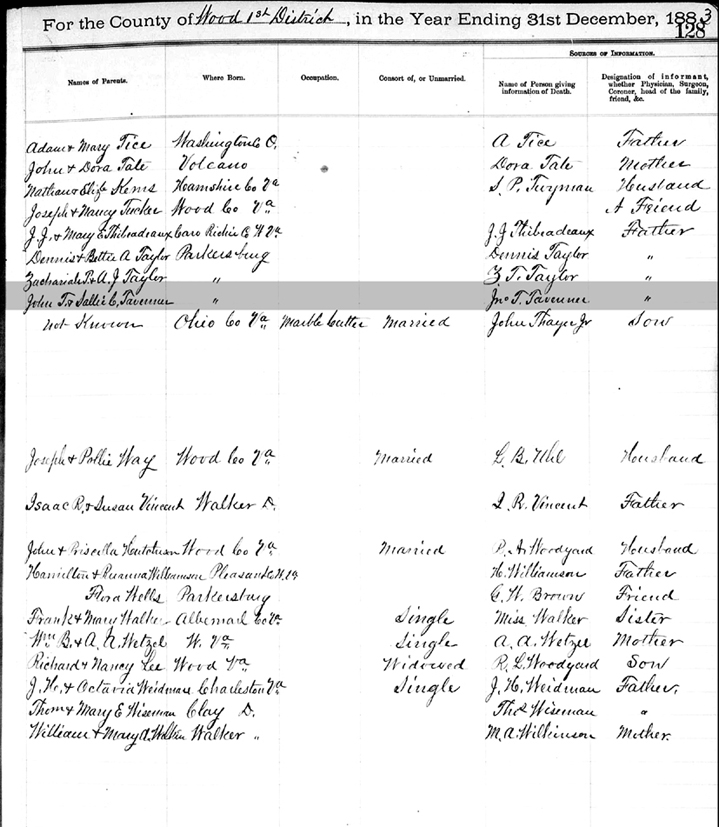 For the County of Wood 1st District, in the Year Ending 31st December, 1883
128
Sources of Information.
Names of Parents. Where Born. Occupation. Consort of, or Unmarried. Name of Person giving information of Death. Designation of informant, whether Physician, Surgeon, Coroner, head of the family, friend, &c.
Adam & Mary Tice Washington Co O. A Tice Father
John & Dora Tate Volcano Dora Tate Mother
Nathan & Eliz. Kerns Hamshire Co Va S. P. Twyman Husband
Joseph & Nancy Tucker Wood Co Va A Friend
J. J. & Mary E Thibeadeaux Cairo Richie Co W Va J. J. Thibeadeaux Father
Dennis & Bettie A Taylor Parkersburg Dennis Taylor "
Zachariah T. & A. J Taylor " Z T. Taylor "
John T. & Sallie C. Tavenner " Jno T. Tavenner "
not Known Ohio Co Va Marble Cutter Married John Thayer Jr Son
Joseph & Pollie Way Wood Co Va Married L. B. Uhl Housband
Isaac R. & Susan Vincent Walker D. I. R. Vincent Father
John & Priscilla Hutchison Wood Co Va Married P. A. Woodyard Housband
Hamilton & Williamson Pleasant Co W. Va H. Williamson Father
Flora Wells Parkersburg G. W. Brown Friend
Frank & Mary Walker Albemarl Co Va Single Miss Walker Sister
Wm B. & A. A. Wetzel W. Va Single A. A. Wetzel Mother
Richard & Nancy Lee Wood Va Widowed R. L. Woodyard Son
J. H. & Octavia Weidman Charleston Va Single J. H. Weidman Father.
Thom & Mary E Wiseman Clay D. Thos Wiseman "
William & Mary A. Walker " M. A. Wilkinson Mother.